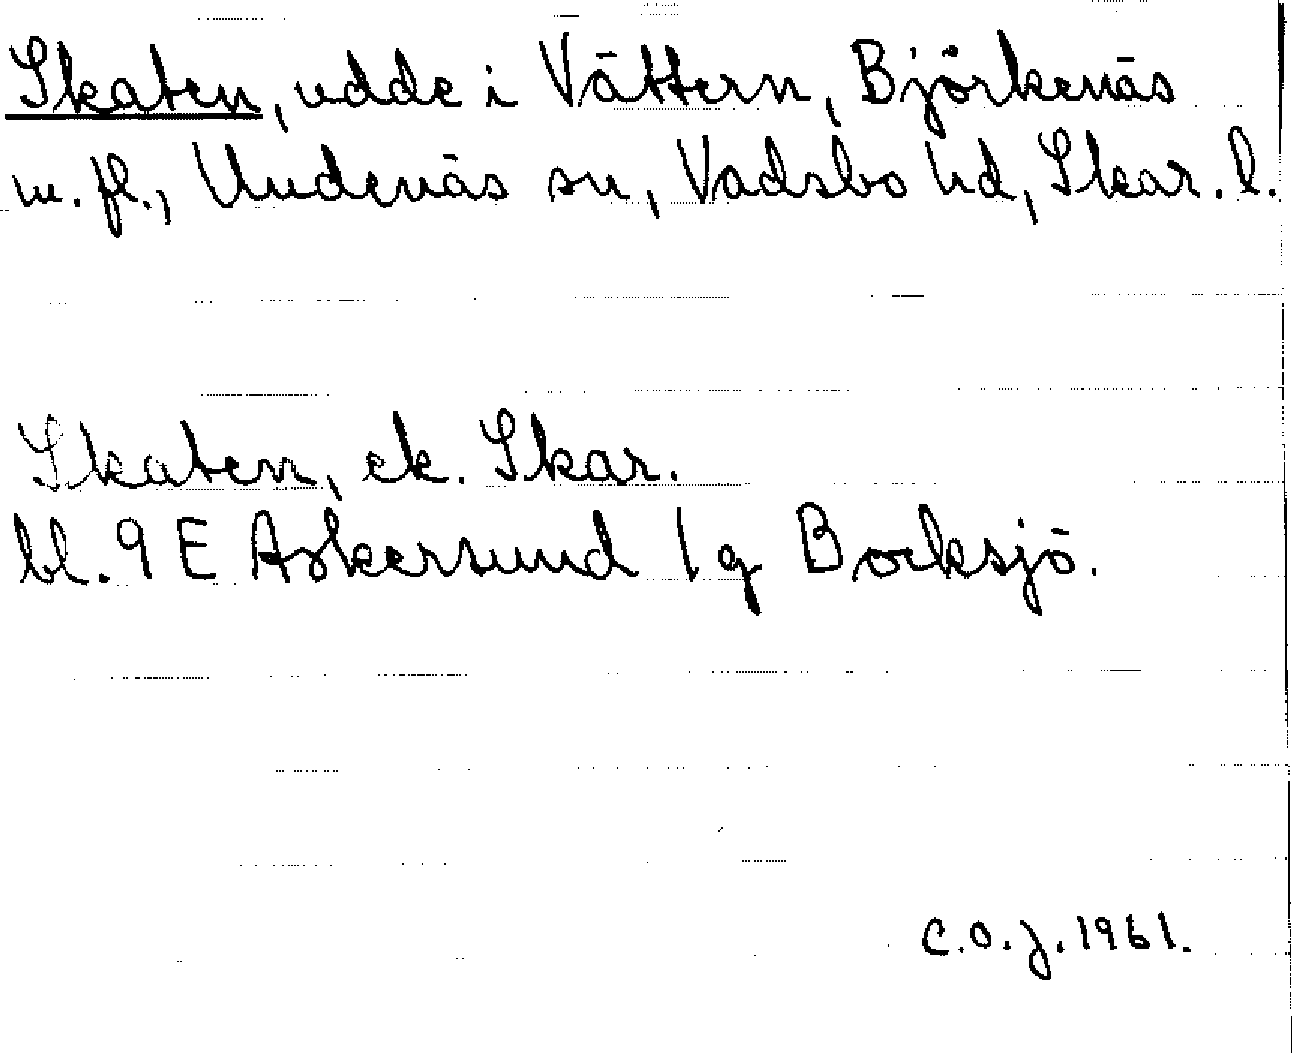 Skaten, udde i Vättern, Björkenäs
m. fl., Undenäs sn, Vadsbo hd, Skar. l.
Skaten, ek. Skar.
bl. 9 E Askersund 1 g Bocksjö.
C.O.J. 1961.